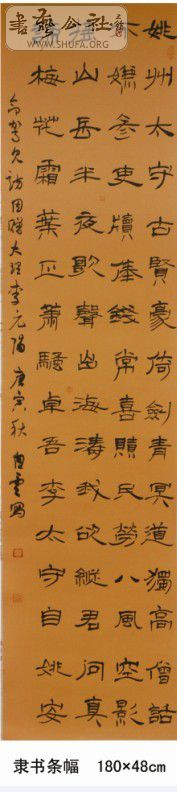 書藝公社
©WWW.SHUFA.ORG
姚州太守古賢豪倚劍青冥道獨高僧話
嫌参吏牘俸錢常喜贖民勞八風空影
山岳半夜歌聲出海濤我欲縱君問真
梅花霜葉正蕭騷卓吾李太守自姚安
命駕訪因贈大理李元陽 庚寅秋 雲寫
隶书条幅 180×48cm